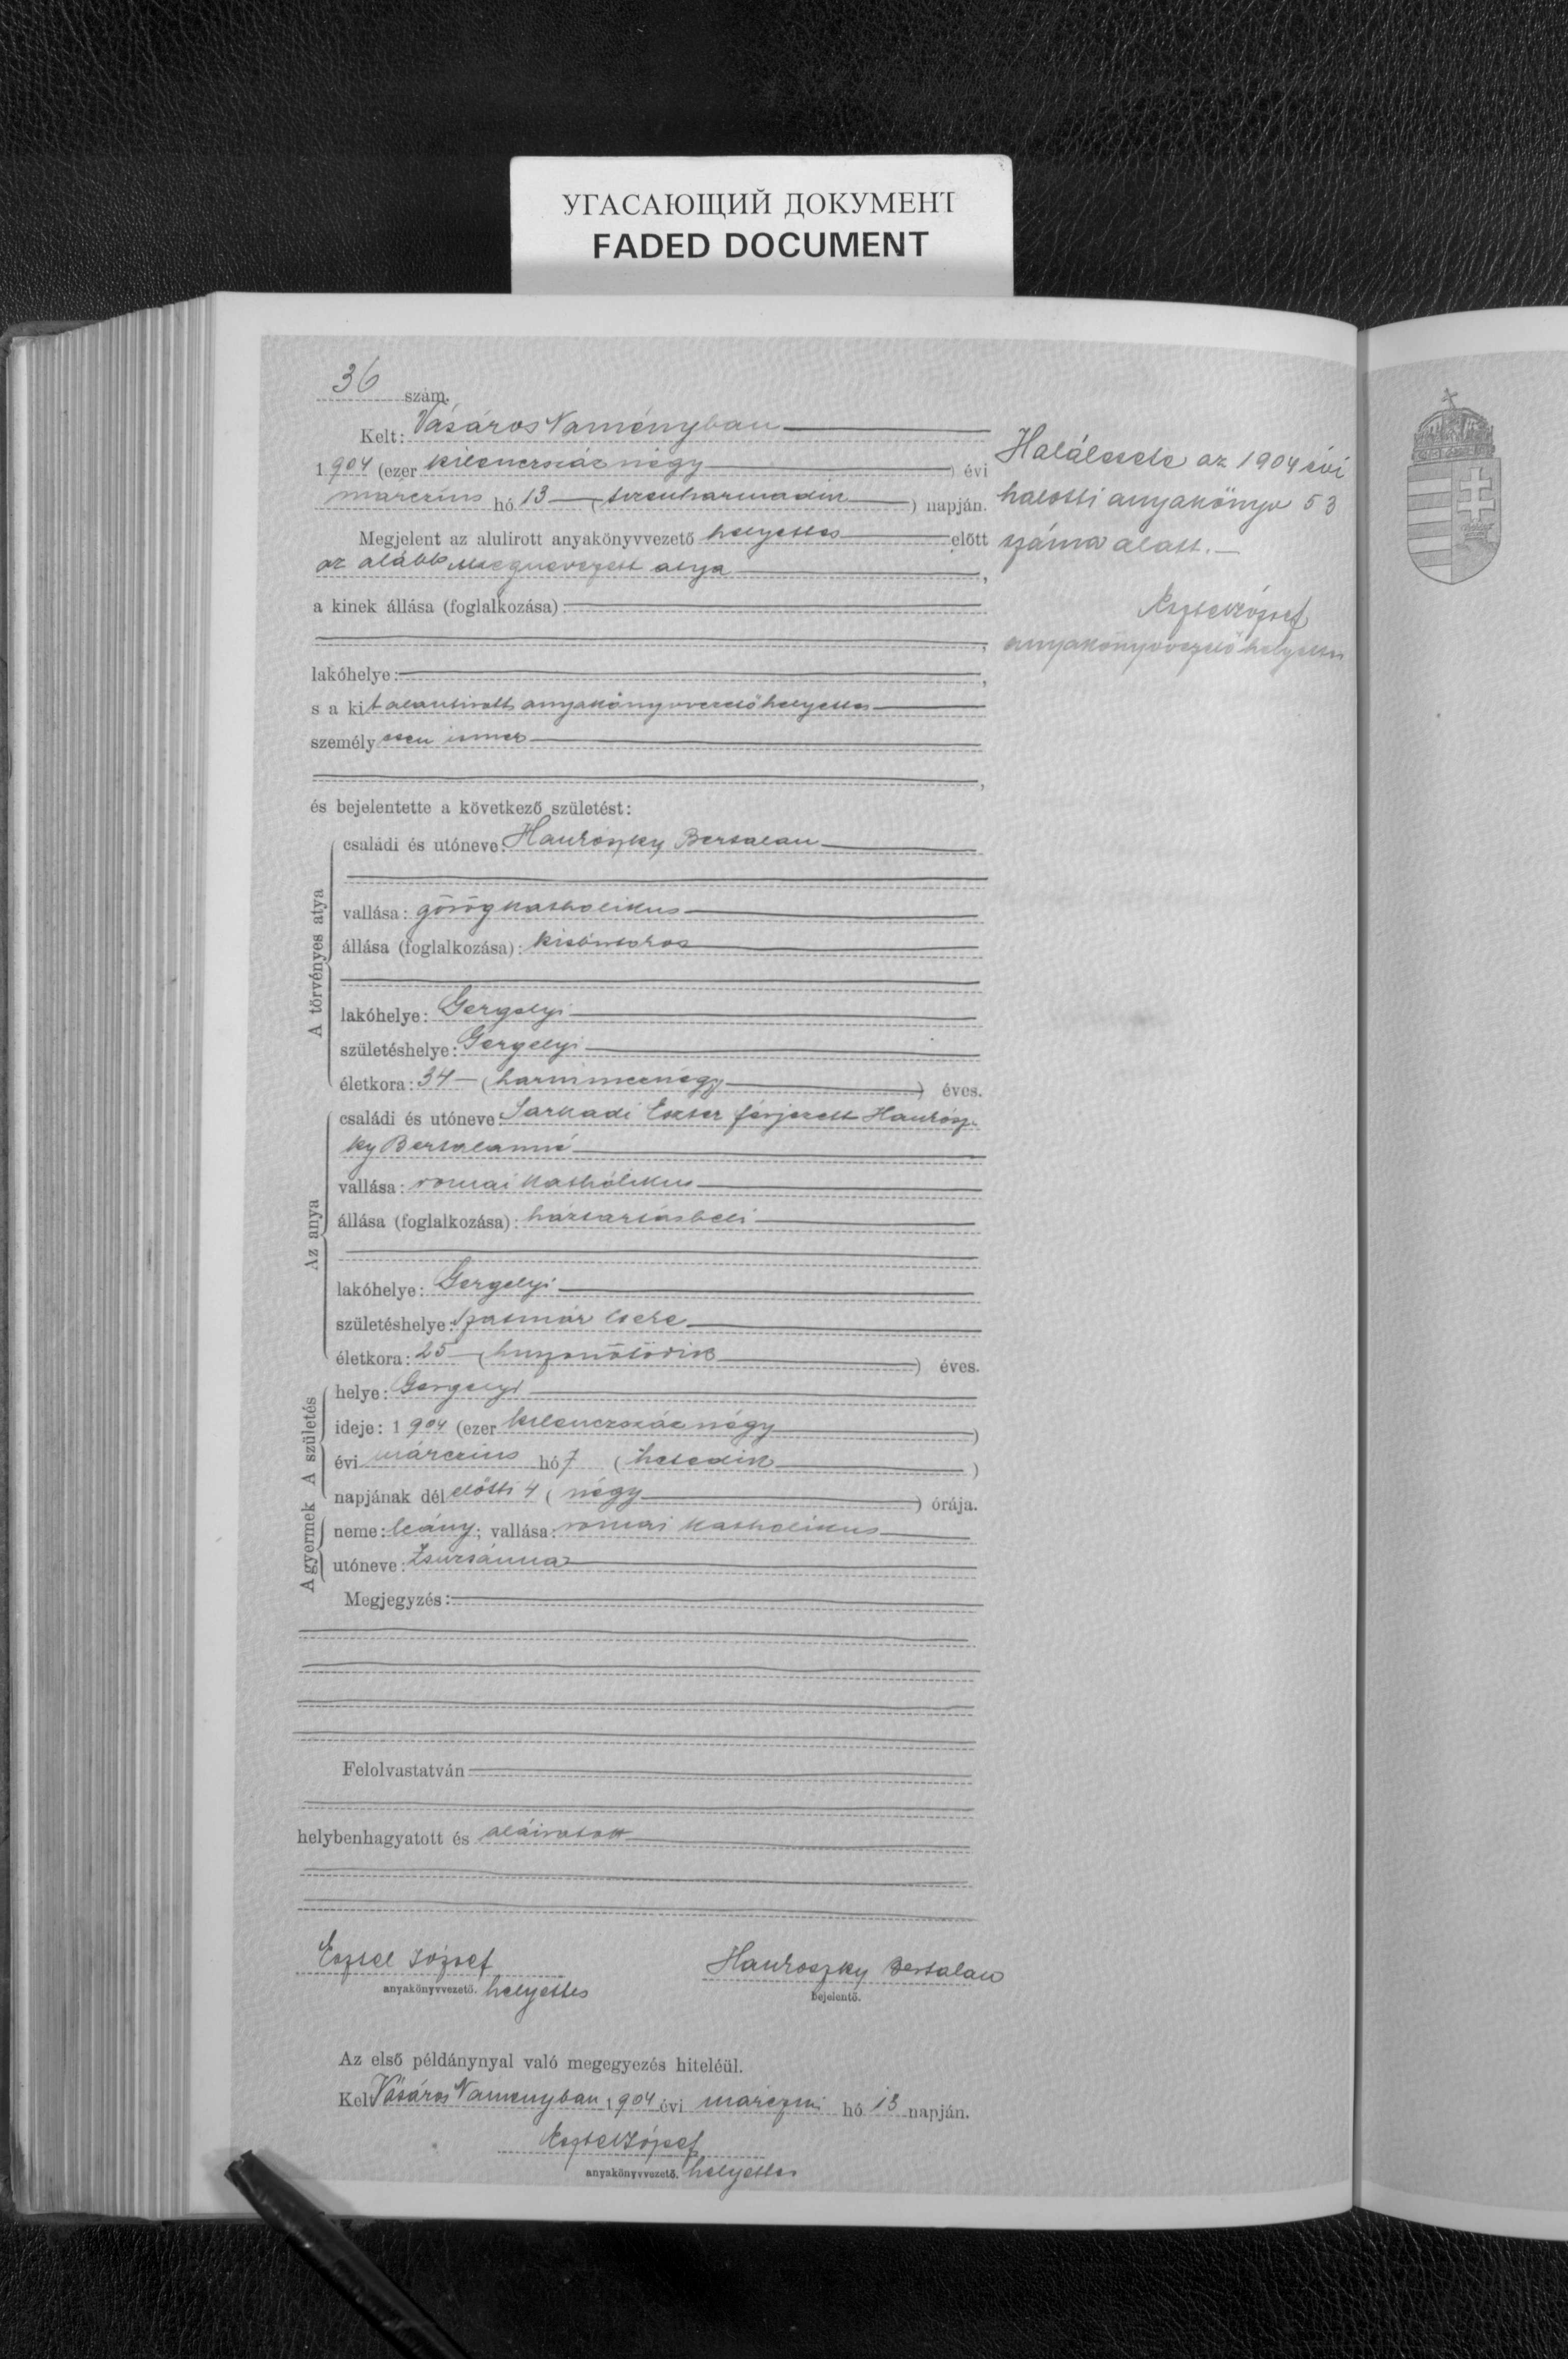 УГАСАЮЩИЙ ДОКУМЕНТ
FADED DOCUMENT
36 szám.
Kelt: Vásáros Naményban
1904 (ezer kilenczszáz négy) évi
márczius hó 13 (tizenharmadik) napján.
Megjelent az alulirott anyakönyvvezető helyettes előtt
az alább megnevezett atya,
a kinek állása (foglalkozása):
lakóhelye:
s a kit alantirott anyakönyvvezető helyettes
személyesen ismer
és bejelentette a következő születést:
A törvényes atya
családi és utóneve: Hauroszky Bertalan
vallása: görög katholikus
állása (foglalkozása): kisbirtokos
lakóhelye: Gergelyi
születéshelye: Gergelyi
életkora: 34 (harmincnégy) éves.
Az anya
családi és utóneve: Sarkadi Eszter férjezett Haurosz-
ky Bertalanné
vallása: romai katholikus
állása (foglalkozása): háztartásbeli
lakóhelye: Gergelyi
születéshelye: Szatmár Cseke
életkora: 25 (huszonötödik) éves.
A születés
helye: Gergelyi
ideje: 1904 (ezer kilenczszáz négy)
évi márczius hó 7 (hetedik)
napjának dél előtti 4 (négy) órája.
A gyermek
neme: leány; vallása: romai katholikus
utóneve: Zsuzsánna
Megjegyzés:
Felolvastatván
helybenhagyatott és aláiratott
Esztel József
anyakönyvvezető. helyettes
Hauroszky Bertalan
bejelentő.
Az első példánynyal való megegyezés hiteléül.
Kelt Vásáros Naményban 1904 évi márczius hó 13 napján.
Esztel József
anyakönyvvezető. helyettes
Halálesete az 1904 évi
halotti anyakönyv 53
száma alatt.
Esztel József
anyakönyvvezető helyettes